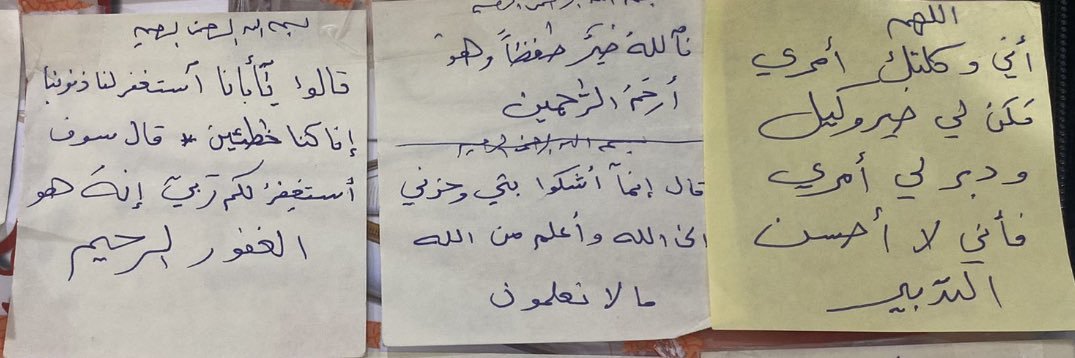 بسم الله الرحمن الرحيم
قالوا يٓأبانا ٱستغفر لنا ذنوبنا
إنا كنا خٰطئين * قال سوف
أستغفرُ لكم ربيٓ إنهُ هو
الغفور الرحيم
بسم الله الرحمن الرحيم
فٱللهُ خيرٌ حٰفظاً وهو
أرحمُ الرّٰحمين
بسم الله الرحمن الرحيم
قال إنمآ أشكوا بثي وحزني
الى الله وأعلم من الله
ما لا تعلمون
اللهم
أني وكلتك أمري
فكن لي خير وكيل
ودبر لي أمري
فأني لا أحسن
التدبير